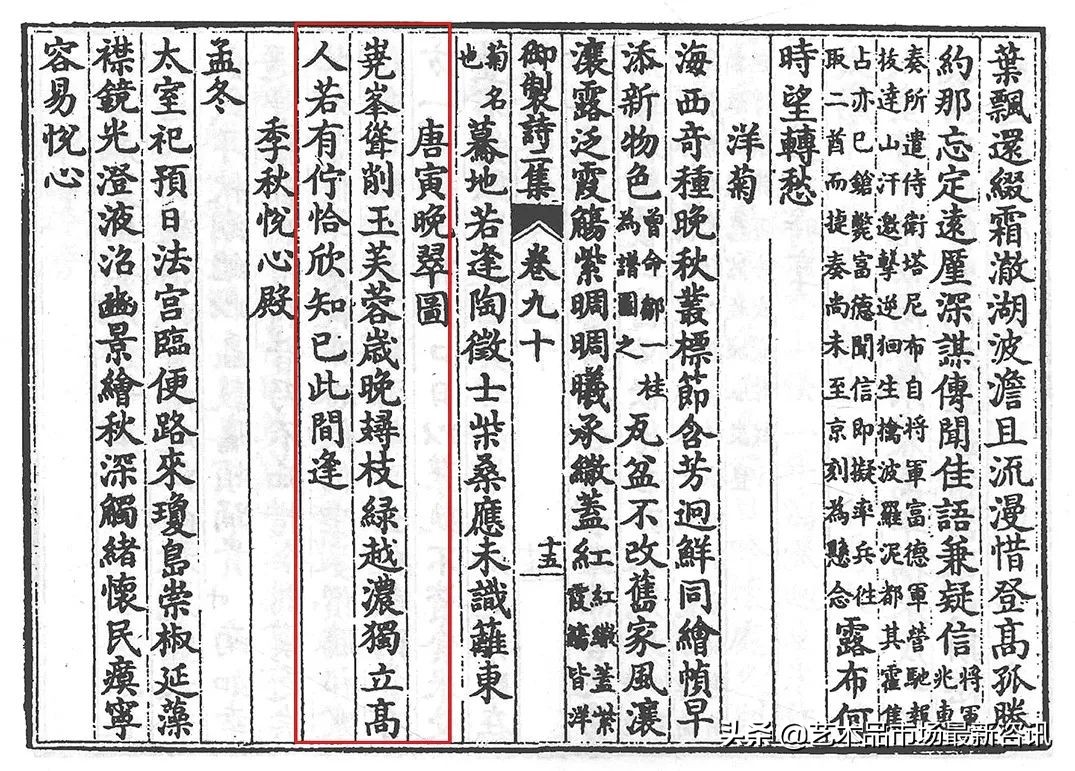 葉飄還綴霜澈湖波澹且流漫惜登高孤勝
約那忘定遠壓深謀傳聞佳語兼疑信將軍兆惠
奏所遣侍衛塔尼布自將軍富德軍營馳報
拔達山汗邀擊逆徊生擒波羅泥都其霍集
占亦已鎗斃富德聞信即擬率兵往
取二酋而捷奏尚未至京刻為懸念露布何
時望轉愁
洋菊
海西奇種晚秋叢標節含芳迥鮮同繪幀早
添新物色曾命鄒一桂為譜圖之瓦盆不改舊家風瀼
瀼露泛霞觴紫晭晭曦承繖蓋紅紅繖蓋紫霞觴皆洋
御製詩二集 卷九十 十五
菊名也驀地若逢陶徵士柴桑應未識籬東
唐寅晚翠圖
峯聳削玉芙蓉歲晚枝綠越濃獨立高
人若有佇恰欣知已此間逢
季秋悅心殿
孟冬
太室祀預日法宮臨便路來瓊島崇椒延藻
襟鏡光澄液沼幽景繪秋深觸緒懷民瘼寧
容易悅心
头条 @艺术品市场最新咨讯